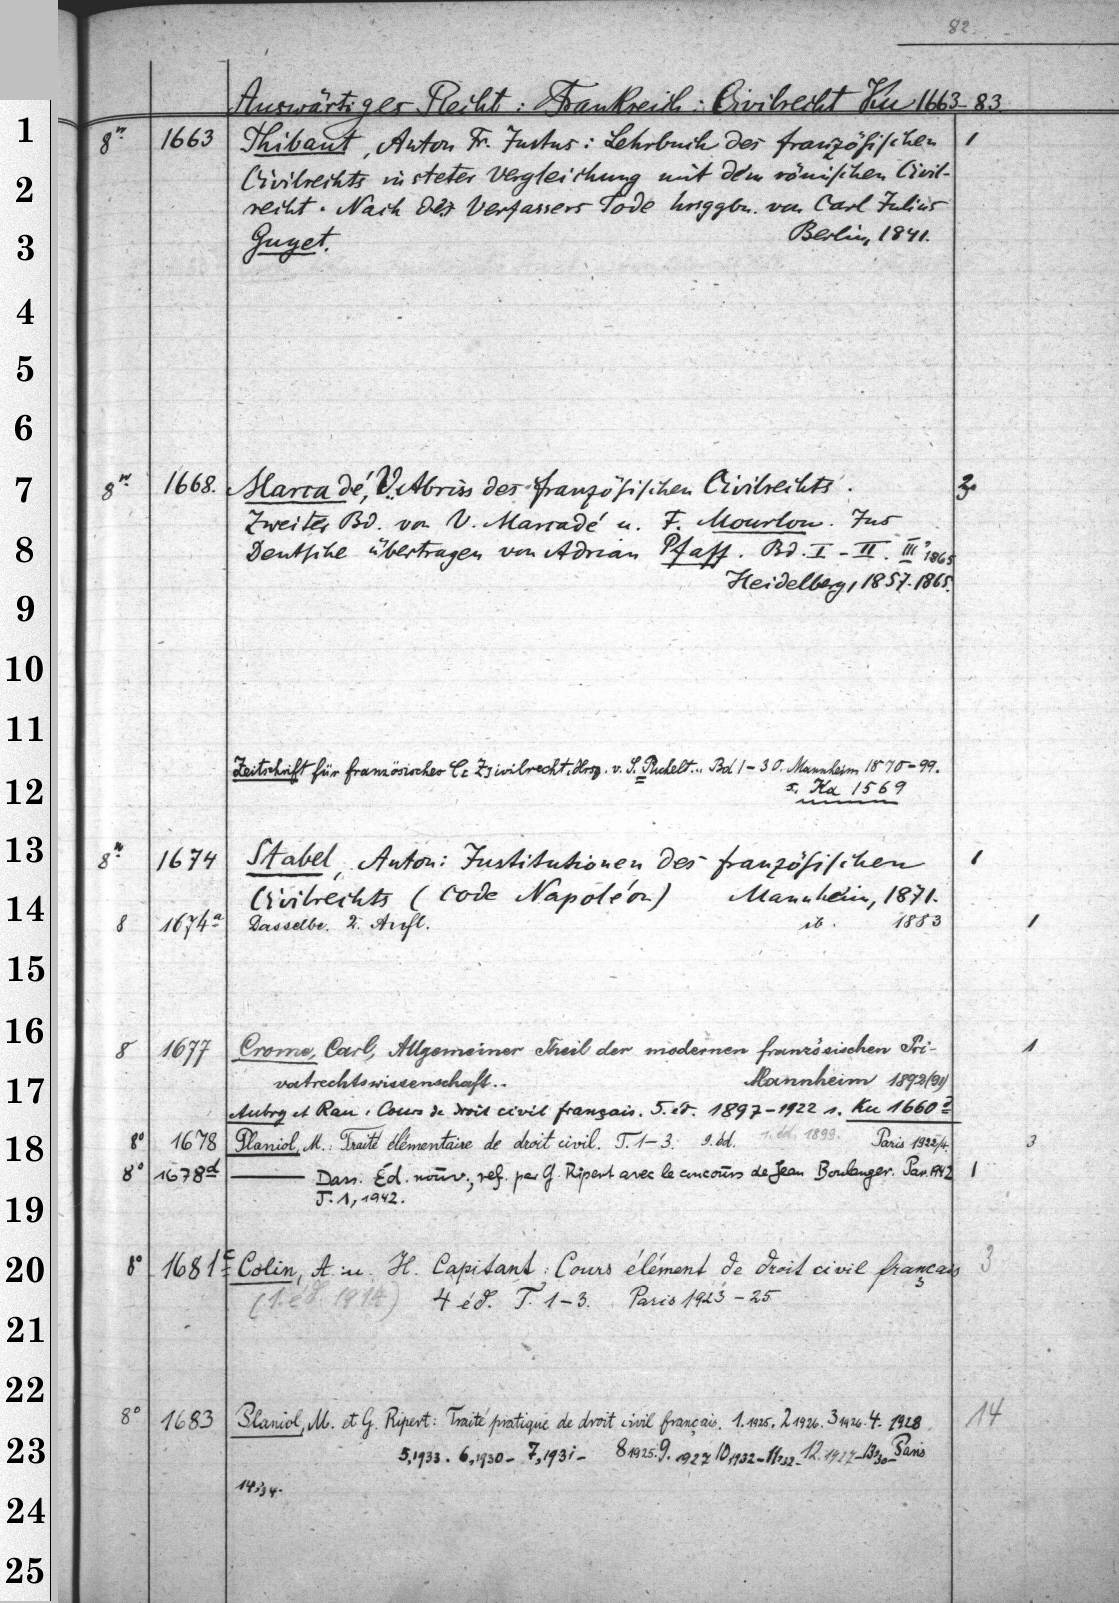 82.
Auswärtiges Recht: Frankreich: Civilrecht Ku 1663-83.
8° 1663 Thibaut, Anton Fr. Justus: Lehrbuch des französischen 1
Civilrechts in steter Vergleichung mit dem römischen Civil-
recht. Nach des Verfassers Tode hrsggbn. von Carl Julius
Guyet. Berlin, 1841.
8° 1668. Marcadé, V. Abriss des französischen Civilrechts. 3
Zweiter Bd. von V. Marcadé u. F. Mourlon. Ins
Deutsche übertragen von Adrian Pfaff. Bd. I-II. III 1865
Heidelberg, 1857. 1865.
Zeitschrift für französisches Zivilrecht. Hrsg. v. S. Puchelt... Bd 1-30. Mannheim 1870-99.
s. Ka 1569
8° 1674 Stabel, Anton: Institutionen des französischen 1
Civilrechts (Code Napoléon) Mannheim, 1871.
8 1674a Dasselbe. 2. Aufl. ib. 1883 1
8 1677 Crome, Carl, Allgemeiner Theil der modernen französischen Pri- 1
vatrechtswissenschaft.. Mannheim 1892(91)
Aubry et Rau: Cours de droit civil français. 5. éd. 1897-1922 s. Ku 1660
8° 1678 Planiol, M.: Traité élémentaire de droit civil. T. 1-3. 9. éd. 1. éd. 1899. Paris 1922/4. 3
8° 1678d Dass. Éd. nouv., ref. par G. Ripert avec le concours de Jean Boulanger. Par. 1942 1
T. 1, 1942.
8° 1681c Colin, A. u. H. Capitant: Cours élément de droit civil français 3
(1. éd. 1914) 4 éd. T. 1-3. Paris 1923-25
8° 1683 Planiol, M. et G. Ripert: Traité pratique de droit civil français. 1. 1925. 2 1926. 3 1926. 4. 1928 14
5, 1933. 6, 1930- 7, 1931- 8 1925. 9. 1927 10 1932- 11 1932- 12. 1927- 13, 1930- Paris
14, 34.
1
2
3
4
5
6
7
8
9
10
11
12
13
14
15
16
17
18
19
20
21
22
23
24
25